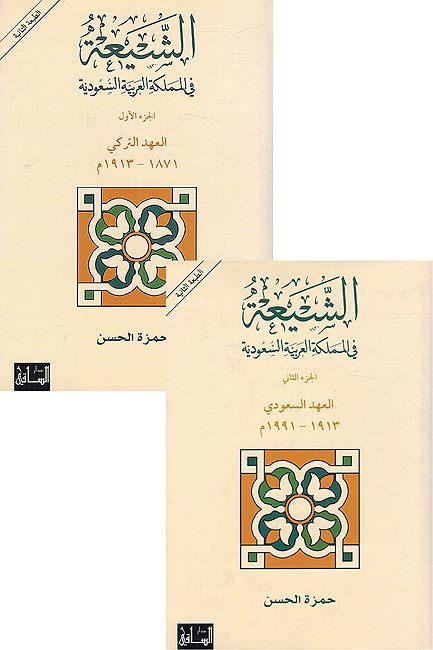 الطبعة الثانية
الشيعة
في المملكة العربية السعودية
الجزء الأول
العهد التركي
١٨٧١ - ١٩١٣م
حمزة الحسن
دار
الساقي
الطبعة الثانية
الشيعة
في المملكة العربية السعودية
الجزء الثاني
العهد السعودي
١٩١٣ - ١٩٩١م
حمزة الحسن
دار
الساقي